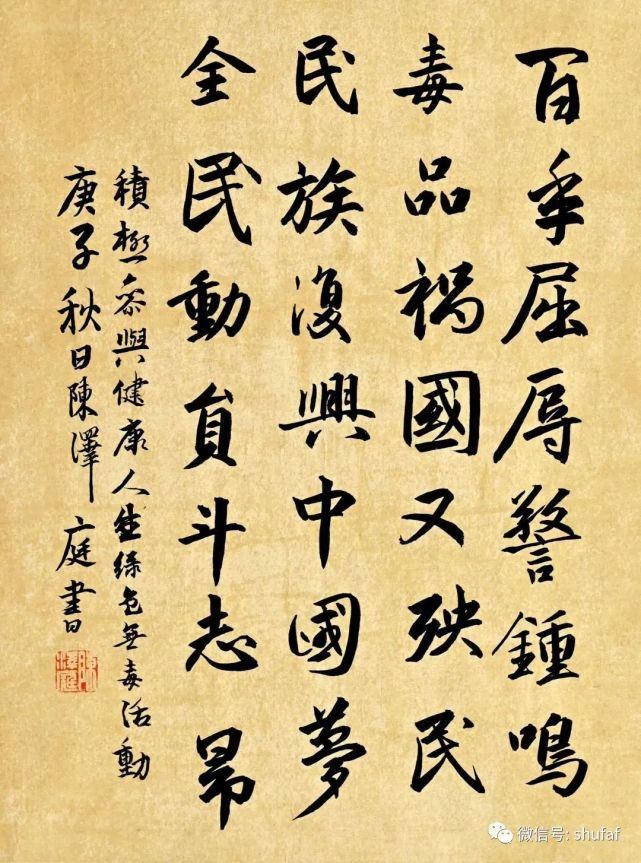 百年屈辱警鍾鳴
毒品禍國又殃民
民族復興中國夢
全民動員斗志昂
積極參與健康人生綠色無毒活動
庚子秋日陳澤廷書
微信号: shufaf